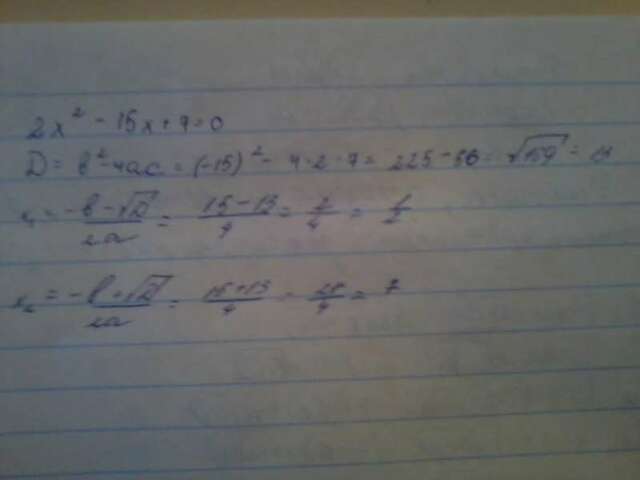 2x² - 15x + 7 = 0
D = b² - 4ac = (-15)² - 4·2·7 = 225 - 56 = √169 = 13
x₁ = (-b - √D)/2a = (15 - 13)/4 = 2/4 = 1/2
x₂ = (-b + √D)/2a = (15 + 13)/4 = 28/4 = 7